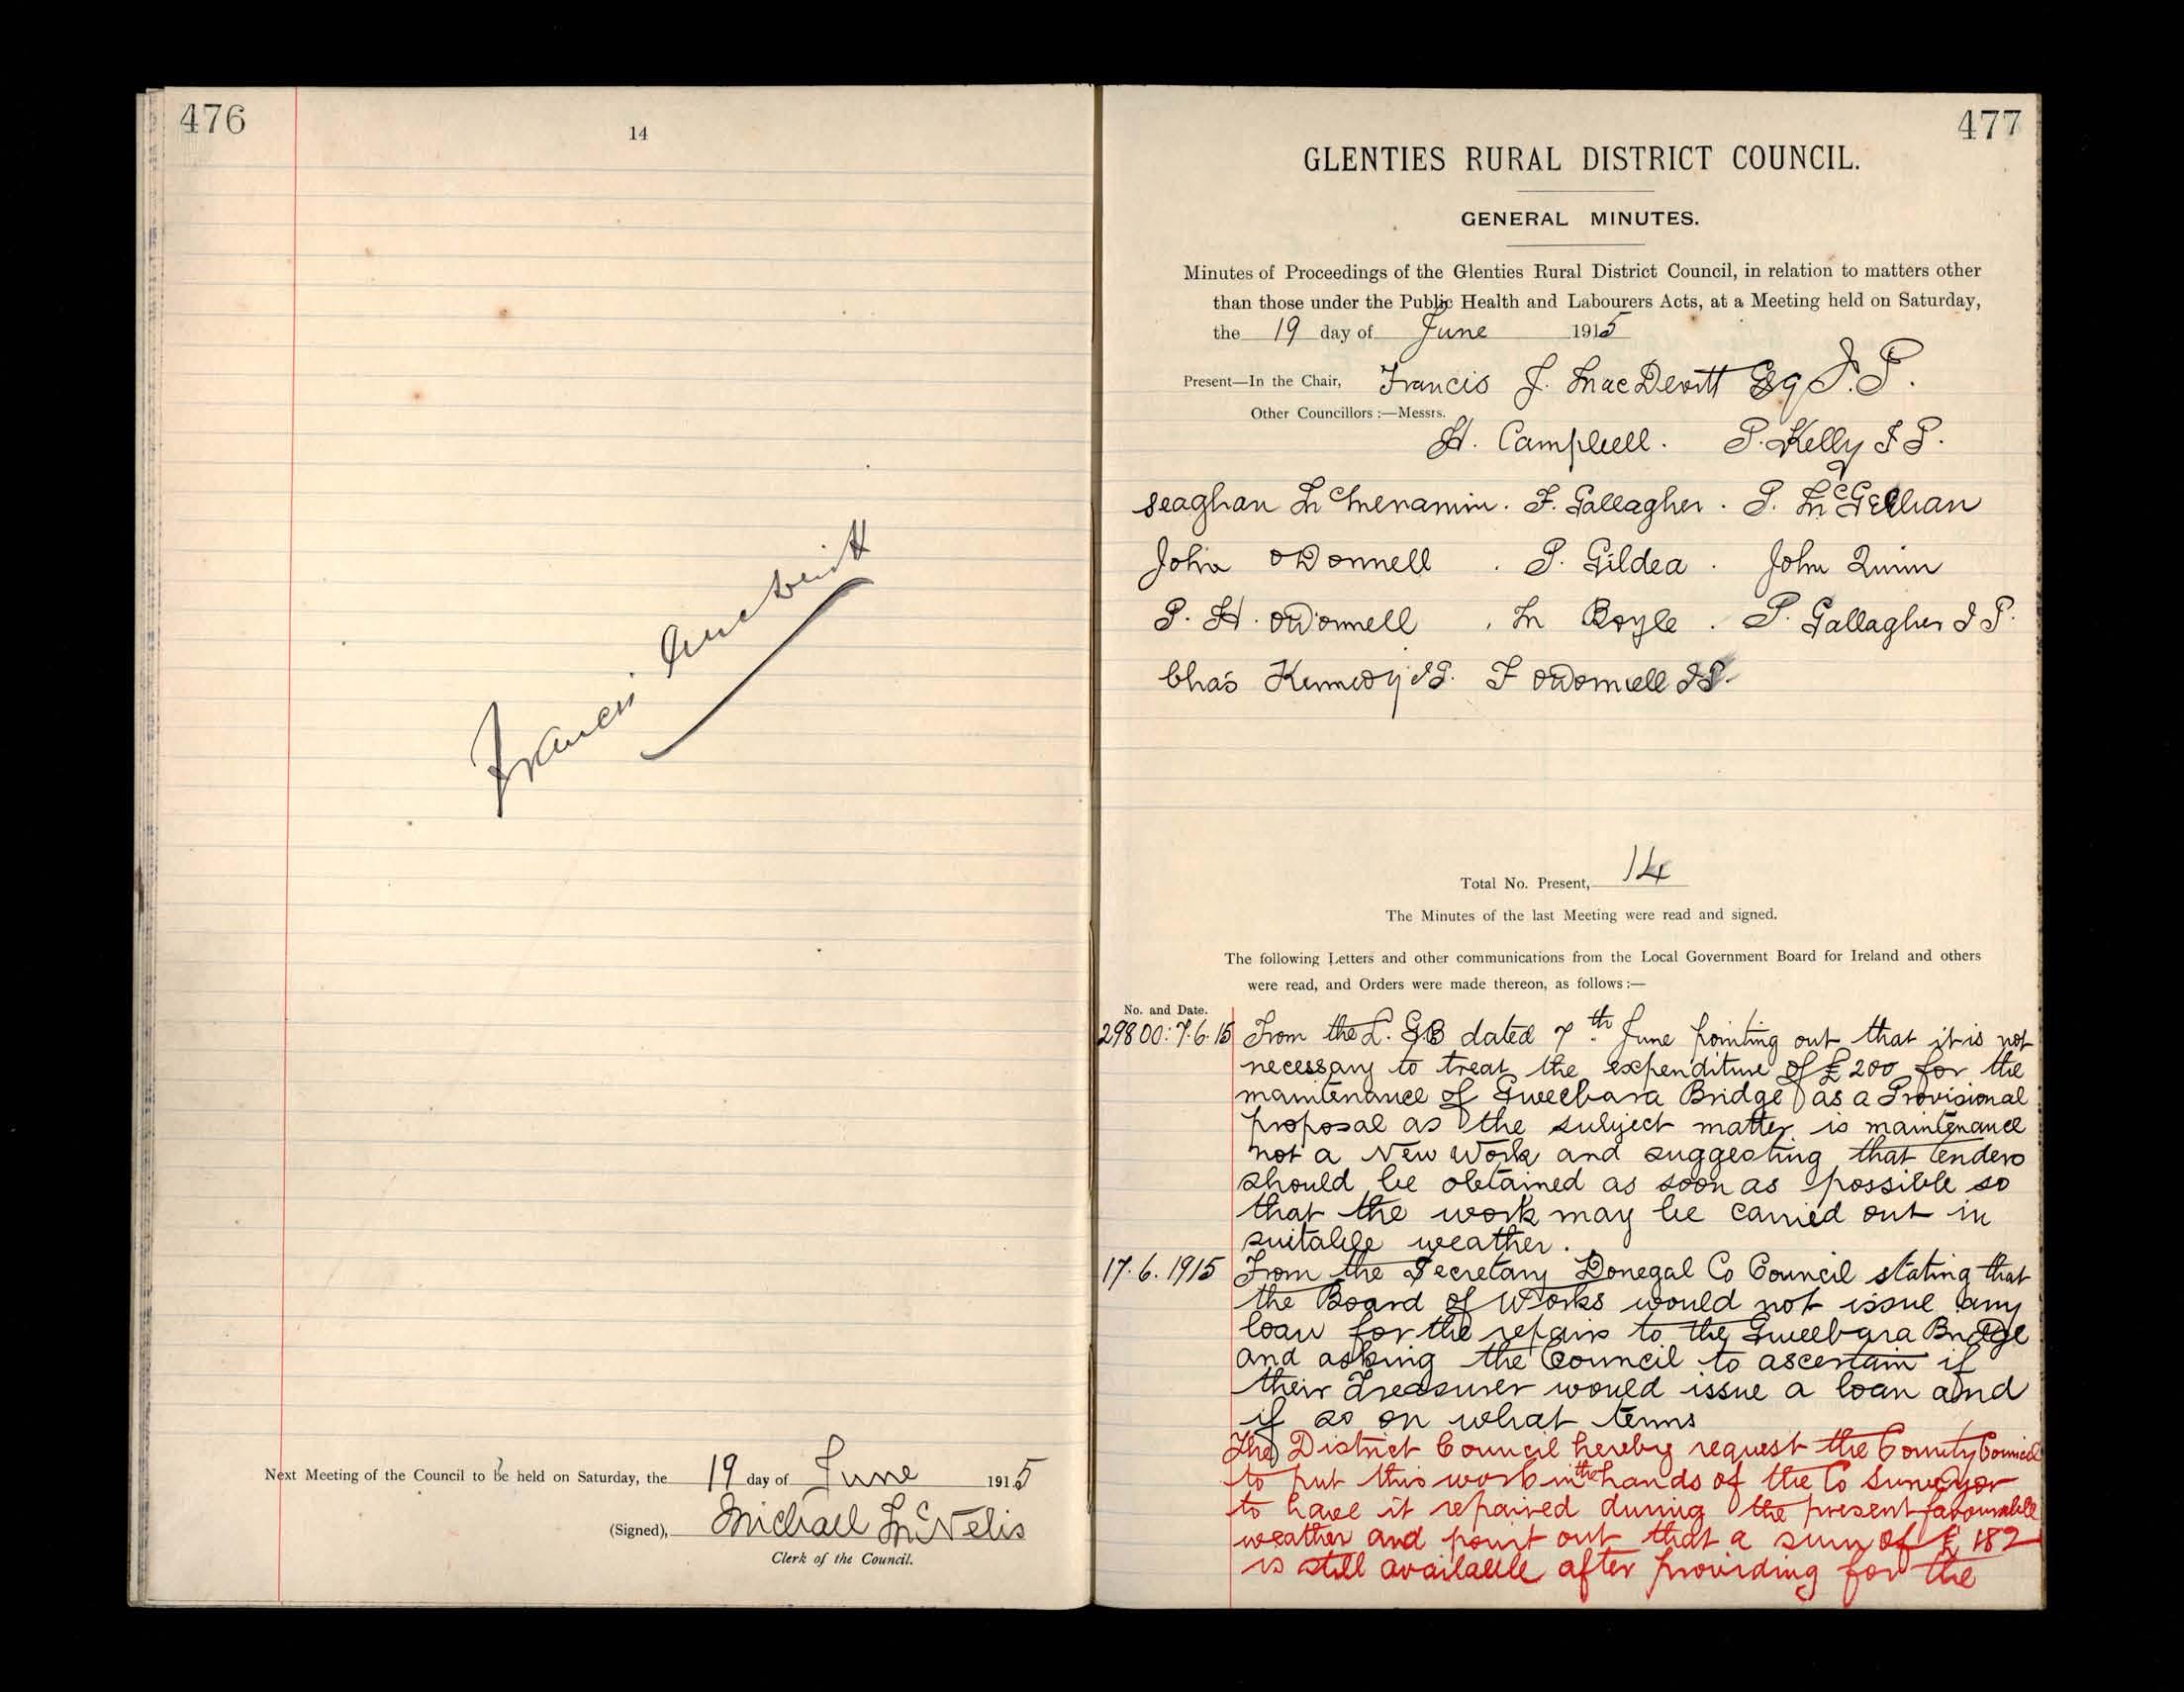 476
14
Francis MacDevitt
Next Meeting of the Council to be held on Saturday, the 19 day of June 1915
(Signed), Michael McNelis
Clerk of the Council.
477
GLENTIES RURAL DISTRICT COUNCIL.
GENERAL MINUTES.
Minutes of Proceedings of the Glenties Rural District Council, in relation to matters other
than those under the Public Health and Labourers Acts, at a Meeting held on Saturday,
the 19 day of June 1915
Present—In the Chair, Francis J. MacDevitt Esq J.P.
Other Councillors :—Messrs.
H. Campbell. P. Kelly J P.
Seaghan McMenamin. F. Gallagher. P. McGeehan
John O'Donnell. P. Gildea. John Quinn
P. H. O'Donnell. M Boyle. P. Gallagher J P.
Chas Kennedy J P. F O'Donnell J P.
Total No. Present, 14
The Minutes of the last Meeting were read and signed.
The following Letters and other communications from the Local Government Board for Ireland and others
were read, and Orders were made thereon, as follows :—
No. and Date.
29800: 7.6.15 From the L. G B dated 7th June pointing out that it is not
necessary to treat the expenditure of £200 for the
maintenance of Gweebara Bridge as a Provisional
proposal as the subject matter is maintenance
not a New Work and suggesting that tenders
should be obtained as soon as possible so
that the work may be carried out in
suitable weather.
17.6.1915 From the Secretary Donegal Co Council stating that
the Board of Works would not issue any
loan for the repairs to the Gweebara Bridge
and asking the Council to ascertain if
their Treasurer would issue a loan and
if so on what terms
The District Council hereby request the County Council
to put this work in the hands of the Co Surveyor
to have it repaired during the present favourable
weather and point out that a sum of £182
is still available after providing for the